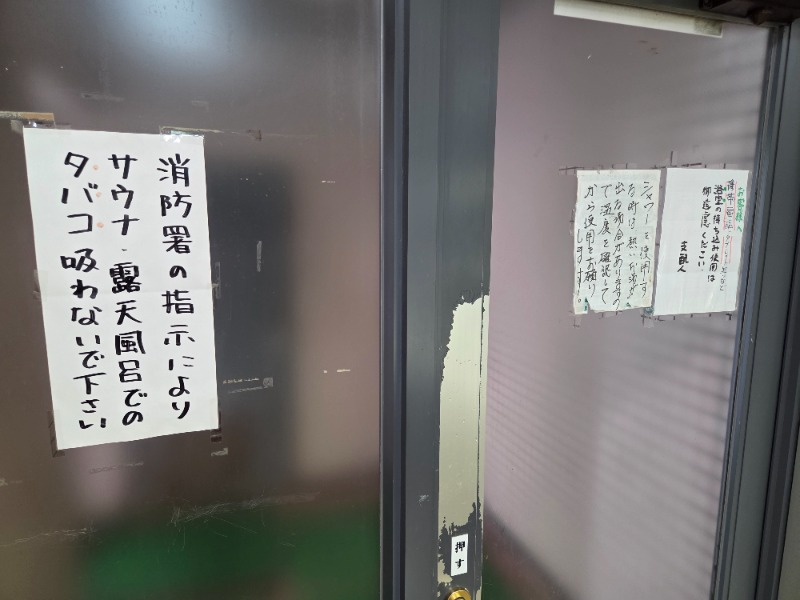 消防署の指示により
サウナ・露天風呂での
タバコ吸わないで下さい
シャワーを使用す
る時は熱いお湯が
出る場合がありますの
で温度を確認して
から使用をお願い
します。
お客様へ
携帯電話
浴室の持ち込み使用は
御遠慮ください
支配人
押す